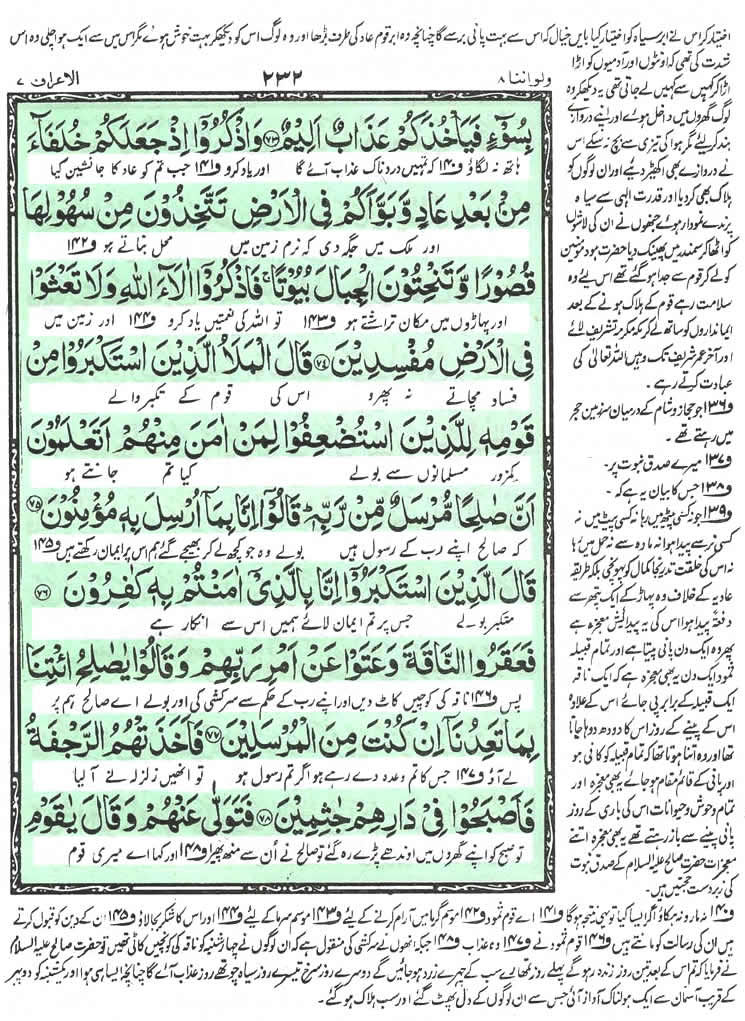 اختیار کر اس نے ابر سیاہ کو اختیار کیا بایں خیال کہ اس سے بہت پانی برسے گا چنانچہ وہ ابر قوم عاد کی طرف بڑھا اور وہ لوگ اس کو دیکھ کر بہت خوش ہوئے مگر اس میں سے ایک ہوا چلی وہ اس
ولو اننا ۸
۲۳۲
الاعراف ۷
بِسُوْٓءٍ فَیَاْخُذَكُمْ عَذَابٌ اَلِیْمٌ ﴿۷۳﴾ وَاذْكُرُوْۤا اِذْ جَعَلَكُمْ خُلَفَآءَ
ہاتھ نہ لگاؤ ف۱۴۰ کہ تمہیں دردناک عذاب آئے گا اور یاد کرو ف۱۴۱ جب تم کو عاد کا جانشین کیا
مِنْۢ بَعْدِ عَادٍ وَّبَوَّاَكُمْ فِی الْاَرْضِ تَتَّخِذُوْنَ مِنْ سُهُوْلِهَا
اور ملک میں جگہ دی کہ نرم زمین میں محل بناتے ہو ف۱۴۲
قُصُوْرًا وَّتَنْحِتُوْنَ الْجِبَالَ بُیُوْتًا ۚ فَاذْكُرُوْۤا اٰلَآءَ اللّٰهِ وَلَا تَعْثَوْا
اور پہاڑوں میں مکان تراشتے ہو ف۱۴۳ تو اللہ کی نعمتیں یاد کرو ف۱۴۴ اور زمین میں
فِی الْاَرْضِ مُفْسِدِیْنَ ﴿۷۴﴾ قَالَ الْمَلَاُ الَّذِیْنَ اسْتَكْبَرُوْا مِنْ
فساد مچاتے نہ پھرو اس کی قوم کے تکبر والے
قَوْمِهٖ لِلَّذِیْنَ اسْتُضْعِفُوْا لِمَنْ اٰمَنَ مِنْهُمْ اَتَعْلَمُوْنَ
کمزور مسلمانوں سے بولے کیا تم جانتے ہو
اَنَّ صٰلِحًا مُّرْسَلٌ مِّنْ رَّبِّهٖ ؕ قَالُوْۤا اِنَّا بِمَاۤ اُرْسِلَ بِهٖ مُؤْمِنُوْنَ ﴿۷۵﴾
کہ صالح اپنے رب کے رسول ہیں بولے وہ جو کچھ لے کر بھیجے گئے ہم اس پر ایمان رکھتے ہیں ف۱۴۵
قَالَ الَّذِیْنَ اسْتَكْبَرُوْۤا اِنَّا بِالَّذِیْۤ اٰمَنْتُمْ بِهٖ كٰفِرُوْنَ ﴿۷۶﴾
متکبر بولے جس پر تم ایمان لائے ہمیں اس سے انکار ہے
فَعَقَرُوا النَّاقَةَ وَعَتَوْا عَنْ اَمْرِ رَبِّهِمْ وَقَالُوْا یٰصٰلِحُ ائْتِنَا
پس ف۱۴۶ ناقہ کی کوچیں کاٹ دیں اور اپنے رب کے حکم سے سرکشی کی اور بولے اے صالح ہم پر
بِمَا تَعِدُنَاۤ اِنْ كُنْتَ مِنَ الْمُرْسَلِیْنَ ﴿۷۷﴾ فَاَخَذَتْهُمُ الرَّجْفَةُ
لے آؤ ف۱۴۷ جس کا تم وعدہ دے رہے ہو اگر تم رسول ہو تو انھیں زلزلہ نے آ لیا
فَاَصْبَحُوْا فِیْ دَارِهِمْ جٰثِمِیْنَ ﴿۷۸﴾ فَتَوَلّٰی عَنْهُمْ وَقَالَ یٰقَوْمِ
تو صبح کو اپنے گھروں میں اوندھے پڑے رہ گئے تو صالح نے اُن سے منہ پھیرا ف۱۴۸ اور کہا اے میری قوم
شدت کی تھی کہ اونٹوں اور آدمیوں کو اڑا
اڑا کر کہیں سے کہیں لے جاتی تھی یہ دیکھ کر وہ
لوگ گھروں میں داخل ہوئے اور اپنے دروازے
بند کر لئے مگر ہوا کی تیزی سے بچ نہ سکے اس
نے دروازے بھی اکھیڑ دیئے اور ان لوگوں کو
ہلاک بھی کر دیا اور قدرت الٰہی سے سیاہ
پرندے نمودار ہوئے جنھوں نے ان کی لاشوں
کو اٹھا کر سمندر میں پھینک دیا حضرت ہود مومنین
کو لے کر قوم سے جدا ہو گئے تھے اس لئے وہ
سلامت رہے قوم کے ہلاک ہونے کے بعد
ایمانداروں کو ساتھ لے کر مکہ مکرمہ تشریف لائے
اور آخر عمر شریف تک وہیں اللہ تعالیٰ کی
عبادت کرتے رہے۔
ف۱۳۶ جو حجاز و شام کے درمیان سرزمین حجر
میں رہتے تھے۔
ف۱۳۷ میرے صدق نبوت پر۔
ف۱۳۸ جس کا بیان یہ ہے کہ۔
ف۱۳۹ جو نہ کسی پیٹھ میں رہا نہ کسی پیٹ میں نہ
کسی نر سے پیدا ہوا نہ مادہ سے نہ حمل میں رہا
نہ اس کی خلقت تدریجاً کمال کو پہونچی بلکہ طریقہ
عادیہ کے خلاف وہ پہاڑ کے ایک پتھر سے
دفعۃً پیدا ہوا اس کی یہ پیدائش معجزہ ہے
پھر وہ ایک دن پانی پیتا ہے اور تمام قبیلہ
ثمود ایک دن یہ بھی معجزہ ہے کہ ایک ناقہ
ایک قبیلہ کے برابر پی جائے اس کے علاوہ
اس کے پینے کے روز اس کا دودھ دوہا جاتا
تھا اور وہ اتنا ہوتا تھا کہ تمام قبیلہ کو کافی ہو
اور پانی کے قائم مقام ہو جائے یہ بھی معجزہ اور
تمام وحوش و حیوانات اس کی باری کے روز
پانی پینے سے باز رہتے تھے یہ بھی معجزہ اتنے
معجزات حضرت صالح علیہ السلام کے صدق نبوت
کی زبردست حجتیں ہیں۔
ف۱۴۰ نہ مارو نہ ہنکاؤ اگر ایسا کیا تو یہی نتیجہ ہوگا ف۱۴۱ اے قوم ثمود ف۱۴۲ موسم گرما میں آرام کرنے کے لئے ف۱۴۳ موسم سرما کے لئے ف۱۴۴ اور اس کا شکر بجا لاؤ ف۱۴۵ ان کے دین کو قبول کرتے
ہیں ان کی رسالت کو مانتے ہیں ف۱۴۶ قوم ثمود نے ف۱۴۷ وہ عذاب ف۱۴۸ جبکہ انھوں نے سرکشی کی منقول ہے کہ ان لوگوں نے چہار شنبہ کو ناقہ کی کونچیں کاٹی تھیں تو حضرت صالح علیہ السلام
نے فرمایا کہ تم اس کے بعد تین روز زندہ رہو گے پہلے روز تمہارے سب کے چہرے زرد ہو جائیں گے دوسرے روز سرخ تیسرے روز سیاہ چوتھے روز عذاب آئے گا چنانچہ ایسا ہی ہوا اور یکشنبہ کو دوپہر
کے قریب آسمان سے ایک ہولناک آواز آئی جس سے ان لوگوں کے دل پھٹ گئے اور سب ہلاک ہو گئے۔